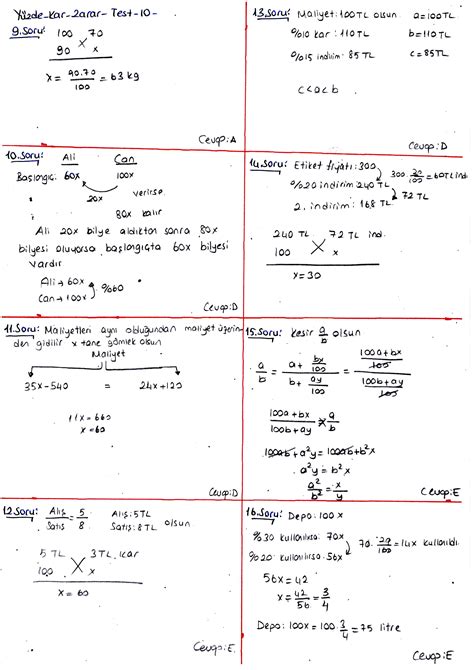 Yüzde-Kar-Zarar- Test-10-
9.Soru: 100 70
90 x
x = 90.70 / 100 = 63 kg
Cevap: A
10.Soru: Ali Can
Başlangıç: 60x 100x
20x verirse
80x kalır
Ali 20x bilye aldıktan sonra 80x
bilyesi oluyorsa başlangıçta 60x bilyesi
vardır.
Ali → 60x
Can → 100x %60
Cevap: D
11.Soru: Maliyetleri aynı olduğundan maliyet üzerin-
den gidilir x tane gömlek olsun
Maliyet
35x-540 = 24x+120
11x = 660
x = 60
Cevap: D
12.Soru: Alış / Satış = 5 / 8 Alış: 5TL
Satış: 8TL olsun
5 TL 3TL kar
100 x
x = 60
Cevap: E
13.Soru: Maliyet: 100 TL olsun a=100TL
%10 kar : 110 TL b=110TL
%15 indirim: 85 TL c=85TL
c<a<b
Cevap: D
14.Soru: Etiket fiyatı: 300
300. 20/100 = 60 TL ind
%20 indirim 240 TL
72 TL
2. indirim: 168 TL
240 TL 72 TL ind.
100 x
x = 30
Cevap: D
15.Soru: Kesir a/b olsun
a/b = (a + bx/100) / (b + ay/100) = ((100a+bx)/100) / ((100b+ay)/100)
(100a+bx)/(100b+ay) a/b
100ab + a²y = 100ab + b²x
a²y = b²x
a²/b² = x/y
Cevap: E
16.Soru: Depo: 100x
%30 kullanılırsa: 70x
70. 20/100 = 14x kullanıldı.
%20 kullanılırsa: 56x
56x = 42
x = 42/56 = 3/4
Depo: 100x = 100. 3/4 = 75 litre
Cevap: E